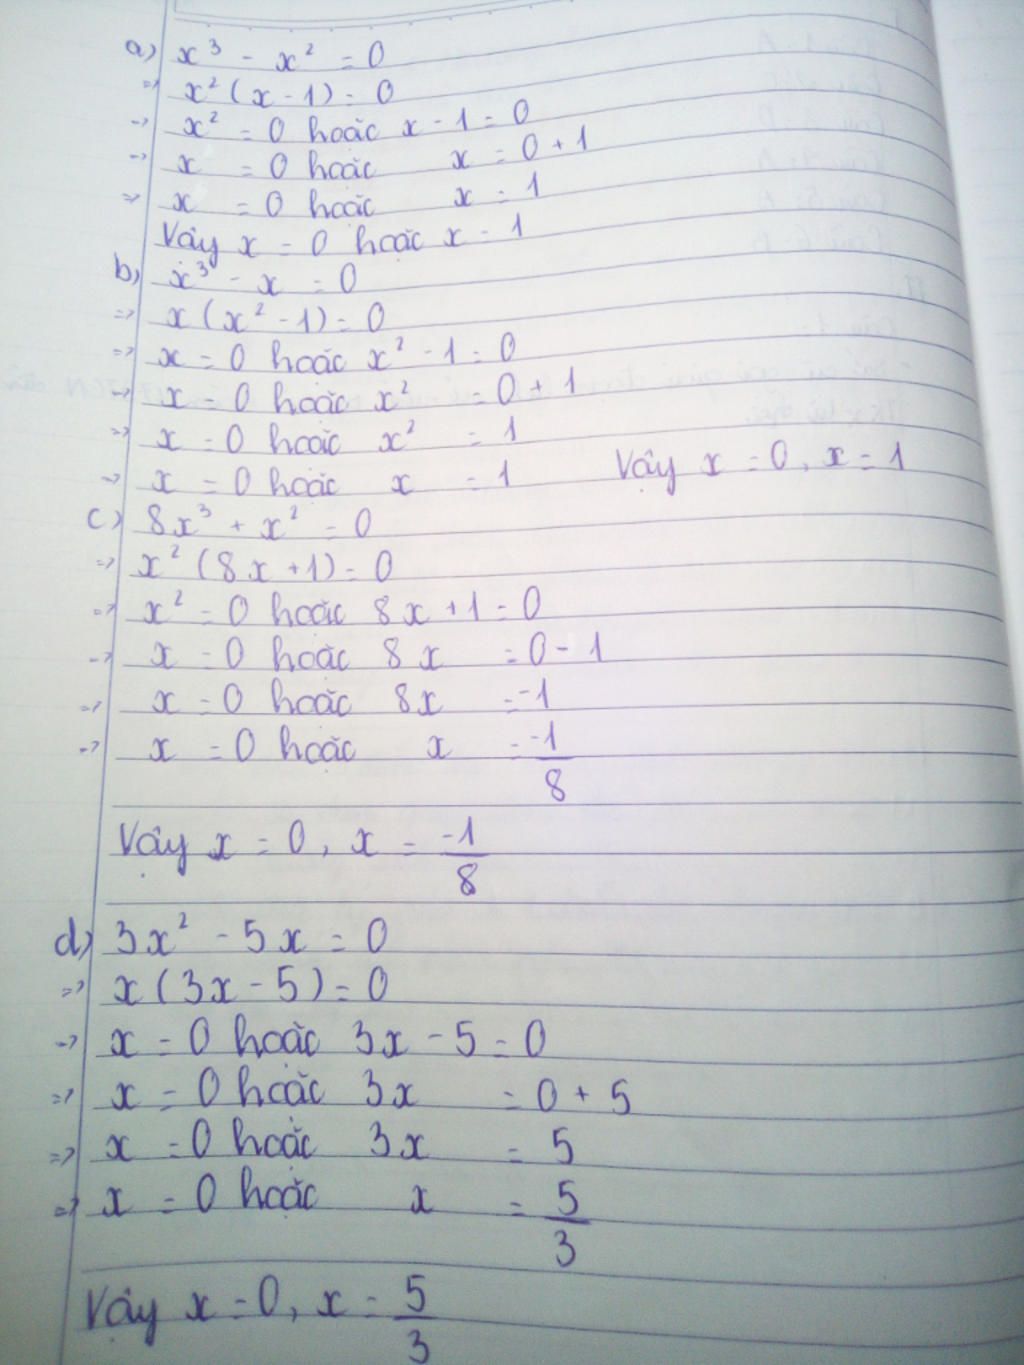 a) x³ - x² = 0
=> x² (x - 1) = 0
=> x² = 0 hoặc x - 1 = 0
=> x = 0 hoặc x = 0 + 1
=> x = 0 hoặc x = 1
Vậy x = 0 hoặc x = 1
b) x³ - x = 0
=> x (x² - 1) = 0
=> x = 0 hoặc x² - 1 = 0
=> x = 0 hoặc x² = 0 + 1
=> x = 0 hoặc x² = 1
=> x = 0 hoặc x = 1 Vậy x = 0, x = 1
c) 8x³ + x² = 0
=> x² (8x + 1) = 0
=> x² = 0 hoặc 8x + 1 = 0
=> x = 0 hoặc 8x = 0 - 1
=> x = 0 hoặc 8x = -1
=> x = 0 hoặc x = -1/8
Vậy x = 0, x = -1/8
d) 3x² - 5x = 0
=> x (3x - 5) = 0
=> x = 0 hoặc 3x - 5 = 0
=> x = 0 hoặc 3x = 0 + 5
=> x = 0 hoặc 3x = 5
=> x = 0 hoặc x = 5/3
Vậy x = 0, x = 5/3